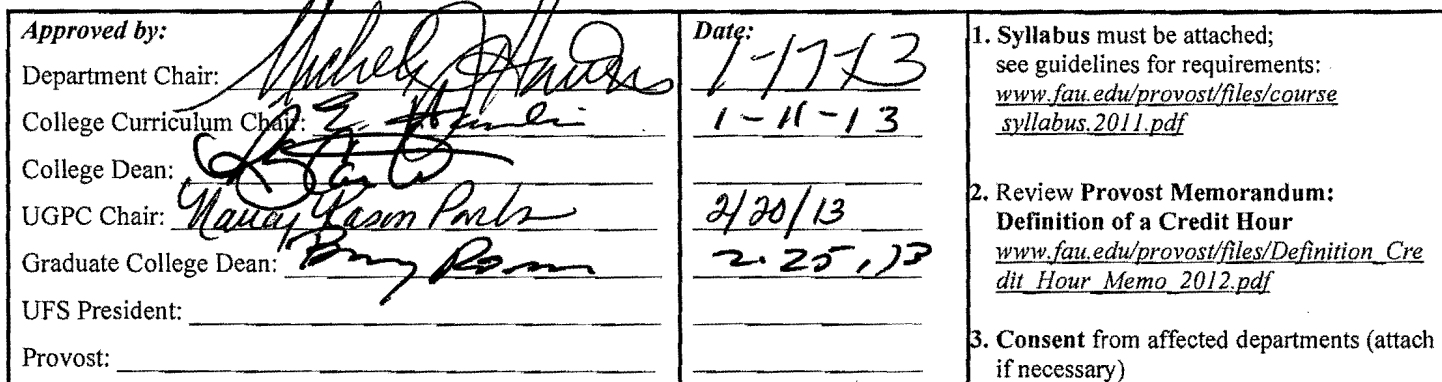 Approved by:
Department Chair:
College Curriculum Chair:
College Dean:
UGPC Chair: Nancy
Graduate College Dean:
UFS President:
Provost:
Date:
1-17-13
1-11-13
2/20/13
2.25.13
1. Syllabus must be attached;
see guidelines for requirements:
www.fau.edu/provost/files/course
syllabus.2011.pdf
2. Review Provost Memorandum:
Definition of a Credit Hour
www.fau.edu/provost/files/Definition_Cre
dit_Hour_Memo_2012.pdf
3. Consent from affected departments (attach
if necessary)